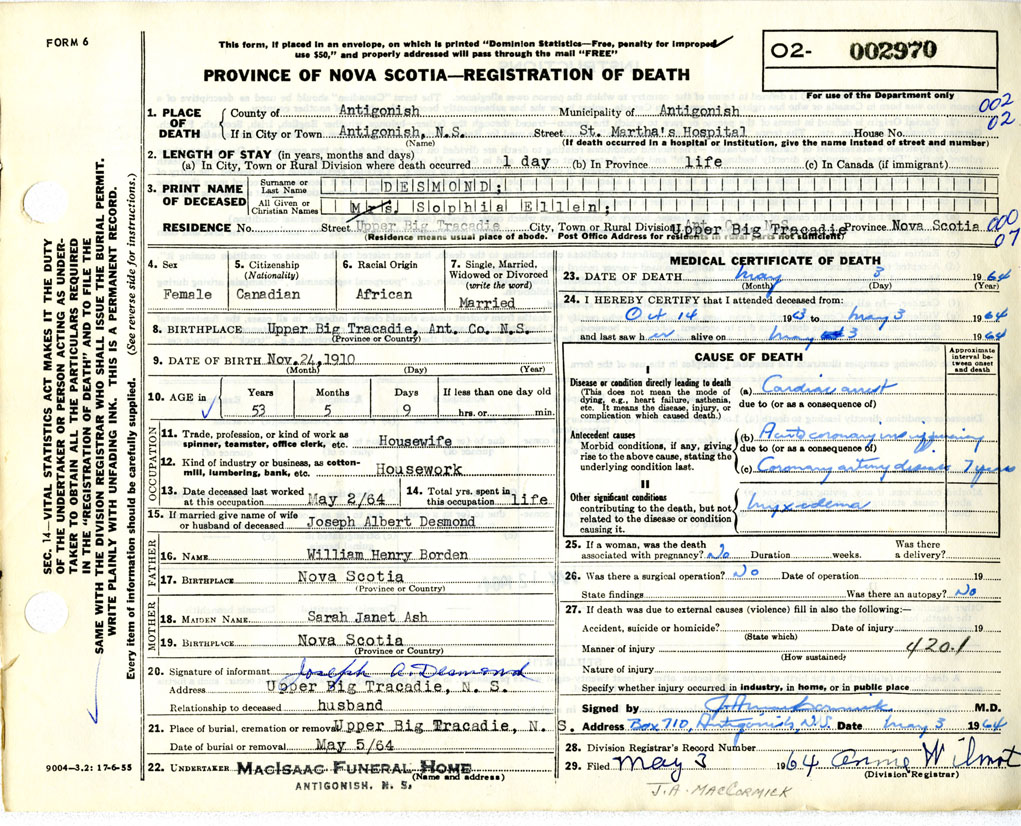 FORM 6
This form, if placed in an envelope, on which is printed "Dominion Statistics—Free, penalty for improper
use $50," and properly addressed will pass through the mail "FREE"
PROVINCE OF NOVA SCOTIA—REGISTRATION OF DEATH
O2- 002970
For use of the Department only
002
02
SEC. 14—VITAL STATISTICS ACT MAKES IT THE DUTY
OF THE UNDERTAKER OR PERSON ACTING AS UNDER-
TAKER TO OBTAIN ALL THE PARTICULARS REQUIRED
IN THE "REGISTRATION OF DEATH" AND TO FILE THE
SAME WITH THE DIVISION REGISTRAR WHO SHALL ISSUE THE BURIAL PERMIT.
WRITE PLAINLY WITH UNFADING INK. THIS IS A PERMANENT RECORD.
Every item of information should be carefully supplied. (See reverse side for instructions.)
1. PLACE OF DEATH
County of Antigonish Municipality of Antigonish
If in City or Town Antigonish, N.S. Street St. Martha's Hospital House No.
(Name) (If death occurred in a hospital or institution, give the name instead of street and number)
2. LENGTH OF STAY (in years, months and days)
(a) In City, Town or Rural Division where death occurred 1 day (b) In Province life (c) In Canada (if immigrant)
3. PRINT NAME OF DECEASED
Surname or Last Name DESMOND;
All Given or Christian Names Mrs. Sophia Ellen;
RESIDENCE No. Street Upper Big Tracadie City, Town or Rural Division Ant. Co. N.S. Upper Big Tracadie Province Nova Scotia
(Residence means usual place of abode. Post Office Address for residents in rural parts not sufficient)
000
07
4. Sex
Female
5. Citizenship
(Nationality)
Canadian
6. Racial Origin
African
7. Single, Married,
Widowed or Divorced
(write the word)
Married
8. BIRTHPLACE Upper Big Tracadie, Ant. Co. N.S.
(Province or Country)
9. DATE OF BIRTH Nov. 24, 1910
(Month) (Day) (Year)
10. AGE in Years Months Days If less than one day old
53 5 9 hrs. or min.
OCCUPATION
11. Trade, profession, or kind of work as
spinner, teamster, office clerk, etc. Housewife
12. Kind of industry or business, as cotton-
mill, lumbering, bank, etc. Housework
13. Date deceased last worked
at this occupation May 2/64
14. Total yrs. spent in
this occupation life
15. If married give name of wife
or husband of deceased Joseph Albert Desmond
FATHER
16. NAME William Henry Borden
17. BIRTHPLACE Nova Scotia
(Province or Country)
MOTHER
18. MAIDEN NAME Sarah Janet Ash
19. BIRTHPLACE Nova Scotia
(Province or Country)
20. Signature of informant Joseph A. Desmond
Address Upper Big Tracadie, N. S.
Relationship to deceased husband
21. Place of burial, cremation or removal Upper Big Tracadie, N. S.
Date of burial or removal May 5/64
22. UNDERTAKER MACISAAC FUNERAL HOME
(Name and address)
ANTIGONISH, N. S.
9004—3.2: 17-6-55
MEDICAL CERTIFICATE OF DEATH
23. DATE OF DEATH May 3 1964
(Month) (Day) (Year)
24. I HEREBY CERTIFY that I attended deceased from:
Oct 14 1963 to May 3 1964
and last saw her alive on May 3 1964
CAUSE OF DEATH
Approximate
interval be-
tween onset
and death
I
Disease or condition directly leading to death
(This does not mean the mode of
dying, e.g., heart failure, asthenia,
etc. It means the disease, injury, or
complication which caused death.)
(a) Cardiac arrest
due to (or as a consequence of)
Antecedent causes
Morbid conditions, if any, giving
rise to the above cause, stating the
underlying condition last.
(b) Acute coronary insufficiency
due to (or as a consequence of)
(c) Coronary artery disease 7 years
II
Other significant conditions
contributing to the death, but not
related to the disease or condition
causing it.
Myxedema
25. If a woman, was the death
associated with pregnancy? No Duration weeks. Was there
a delivery?
26. Was there a surgical operation? No Date of operation 19
State findings Was there an autopsy? No
27. If death was due to external causes (violence) fill in also the following:—
Accident, suicide or homicide? Date of injury 19
(State which)
Manner of injury 420.1
(How sustained)
Nature of injury
Specify whether injury occurred in industry, in home, or in public place
Signed by J. A. MacCormick M.D.
Address Box 710, Antigonish, N.S. Date May 3 1964
28. Division Registrar's Record Number
29. Filed May 3 1964 Annie Wilmot
(Division Registrar)
J. A. MACCORMICK